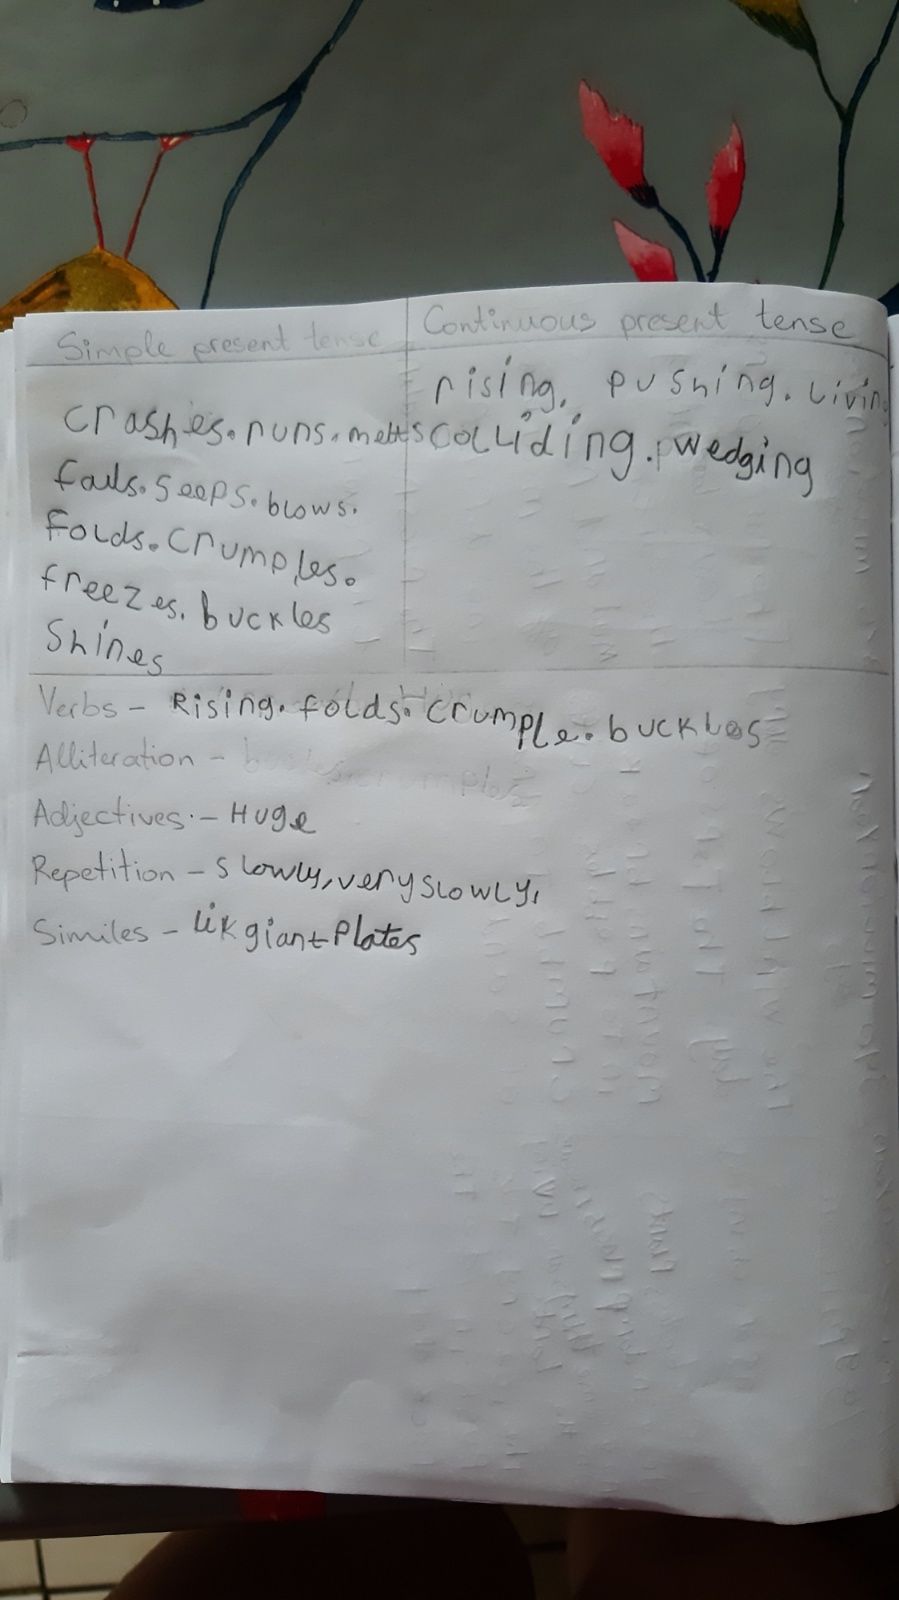 Simple present tense
Continuous present tense
crashes. runs. melts
fails. seeps. blows.
Folds. crumples.
freezes. buckles
Shines
rising. pushing. livin
colliding. wedging
Verbs - Rising. folds. crumple. buckles
Alliteration -
Adjectives. - Huge
Repetition - slowly, very slowly,
Similes - lik giant plates